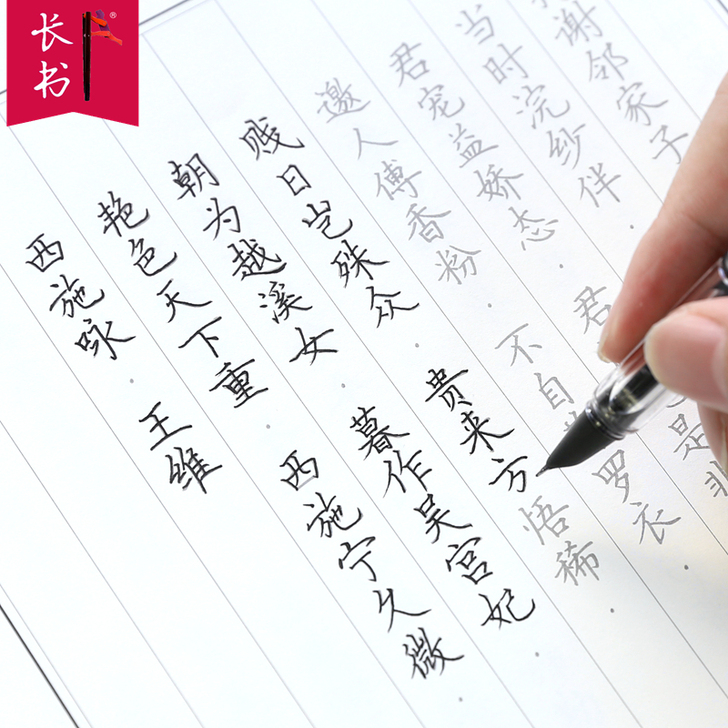 长书
西施咏 王维
艳色天下重 西施宁久微
朝为越溪女 暮作吴宫妃
贱日岂殊众 贵来方悟稀
邀人傅香粉 不自 罗衣
君宠益娇态 君 是非
当时浣纱伴
谢邻家子